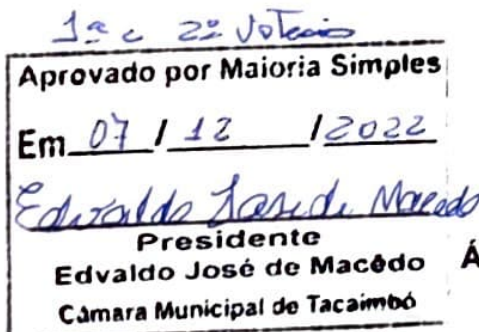 1ª e 2ª Votação
Aprovado por Maioria Simples
Em 07 / 12 / 2022
Edvaldo José de Macedo
Presidente
Edvaldo José de Macêdo
Á
Câmara Municipal de Tacaimbó